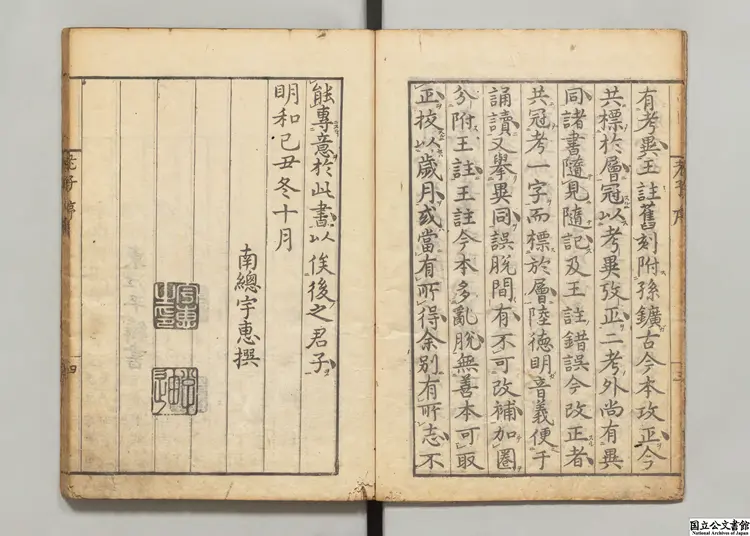 老子序
三
有考異王註舊刻附孫鑛古今本攷正今
共標於層冠以考異攷正二考外尚有異
同諸書隨見隨記及王註錯誤今改正者
共冠考一字而標於層陸德明音義便于
誦讀又擧異同誤脫間有不可改補加圈
分附王註王註今本多亂脫無善本可取
正挍以歲月或當有所得余別有所志不
能專意於此書以俟後之君子
明和己丑冬十月
南總宇惠撰
宇惠之印
老子序
四
国立公文書館
National Archives of Japan